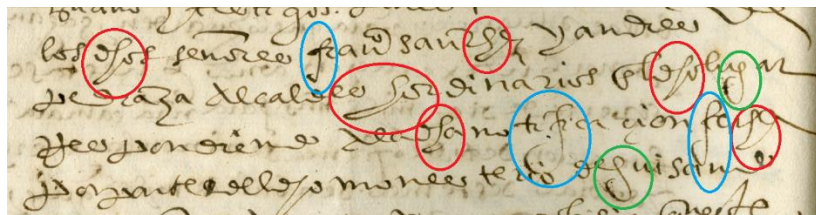 los dhos señores franco sanchz y andres
pedraza alcaldes hordinarios del dho lugar
Respondiendo a la dha notificacion fecha
por parte del dho monesterio de guisando